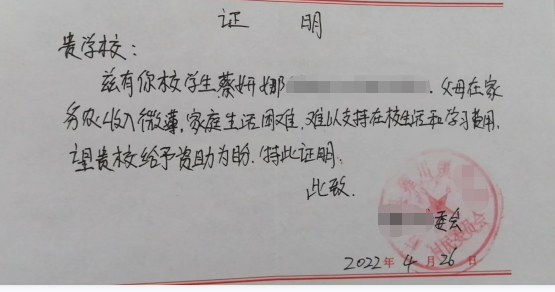 证 明
贵学校：
兹有你校学生蔡妍娜 . 父母在家
务农,收入微薄,家庭生活困难,难以支持在校生活和学习费用,
望贵校给予资助为盼.特此证明.
此致.
委会
村民委员会
2022年4月26日